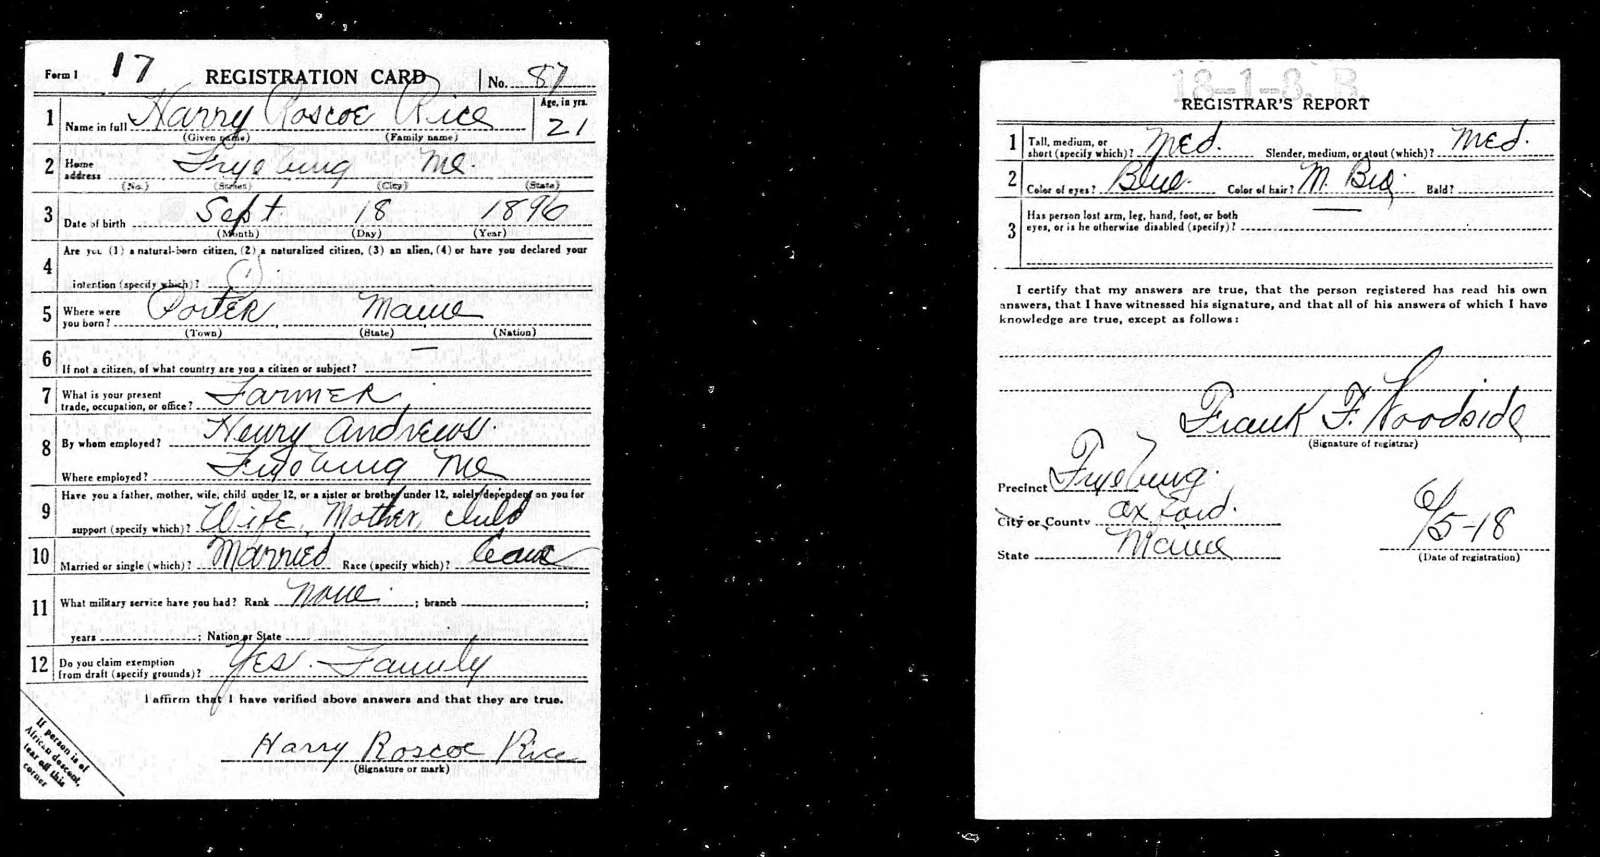 Form 1 17 REGISTRATION CARD No. 87
1 Name in full Harry Roscoe Rice Age, in yrs. 21
(Given name) (Family name)
2 Home address Fryeburg Me.
(No.) (Street) (City) (State)
3 Date of birth Sept. 18 1896
(Month) (Day) (Year)
4 Are you (1) a natural-born citizen, (2) a naturalized citizen, (3) an alien, (4) or have you declared your
intention (specify which)? (1)
5 Where were you born? Porter Maine
(Town) (State) (Nation)
6 If not a citizen, of what country are you a citizen or subject? —
7 What is your present trade, occupation, or office? Farmer
8 By whom employed? Henry Andrews.
Where employed? Fryeburg Me
9 Have you a father, mother, wife, child under 12, or a sister or brother under 12, solely dependent on you for
support (specify which)? Wife, Mother, child
10 Married or single (which)? Married Race (specify which)? Cauc
11 What military service have you had? Rank None ; branch ;
years ; Nation or State
12 Do you claim exemption from draft (specify grounds)? Yes. Family
I affirm that I have verified above answers and that they are true.
Harry Roscoe Rice
(Signature or mark)
If person is of
African descent,
tear off this
corner
18-1-8. B.
REGISTRAR'S REPORT
1 Tall, medium, or short (specify which)? Med. Slender, medium, or stout (which)? Med.
2 Color of eyes? Blue. Color of hair? M. Bro. Bald?
3 Has person lost arm, leg, hand, foot, or both
eyes, or is he otherwise disabled (specify)? —
I certify that my answers are true, that the person registered has read his own
answers, that I have witnessed his signature, and that all of his answers of which I have
knowledge are true, except as follows:
Frank F. Woodside
(Signature of registrar)
Precinct Fryeburg.
City or County Oxford.
State Maine
6/5-18
(Date of registration)